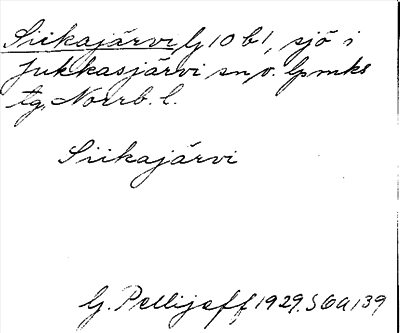 Siikajärvi, G 10 b 1, sjö i
Jukkasjärvi sn, o. lpmks
tg, Norrb. l.
Siikajärvi
G. Pellijeff, 1929. S 6a 139